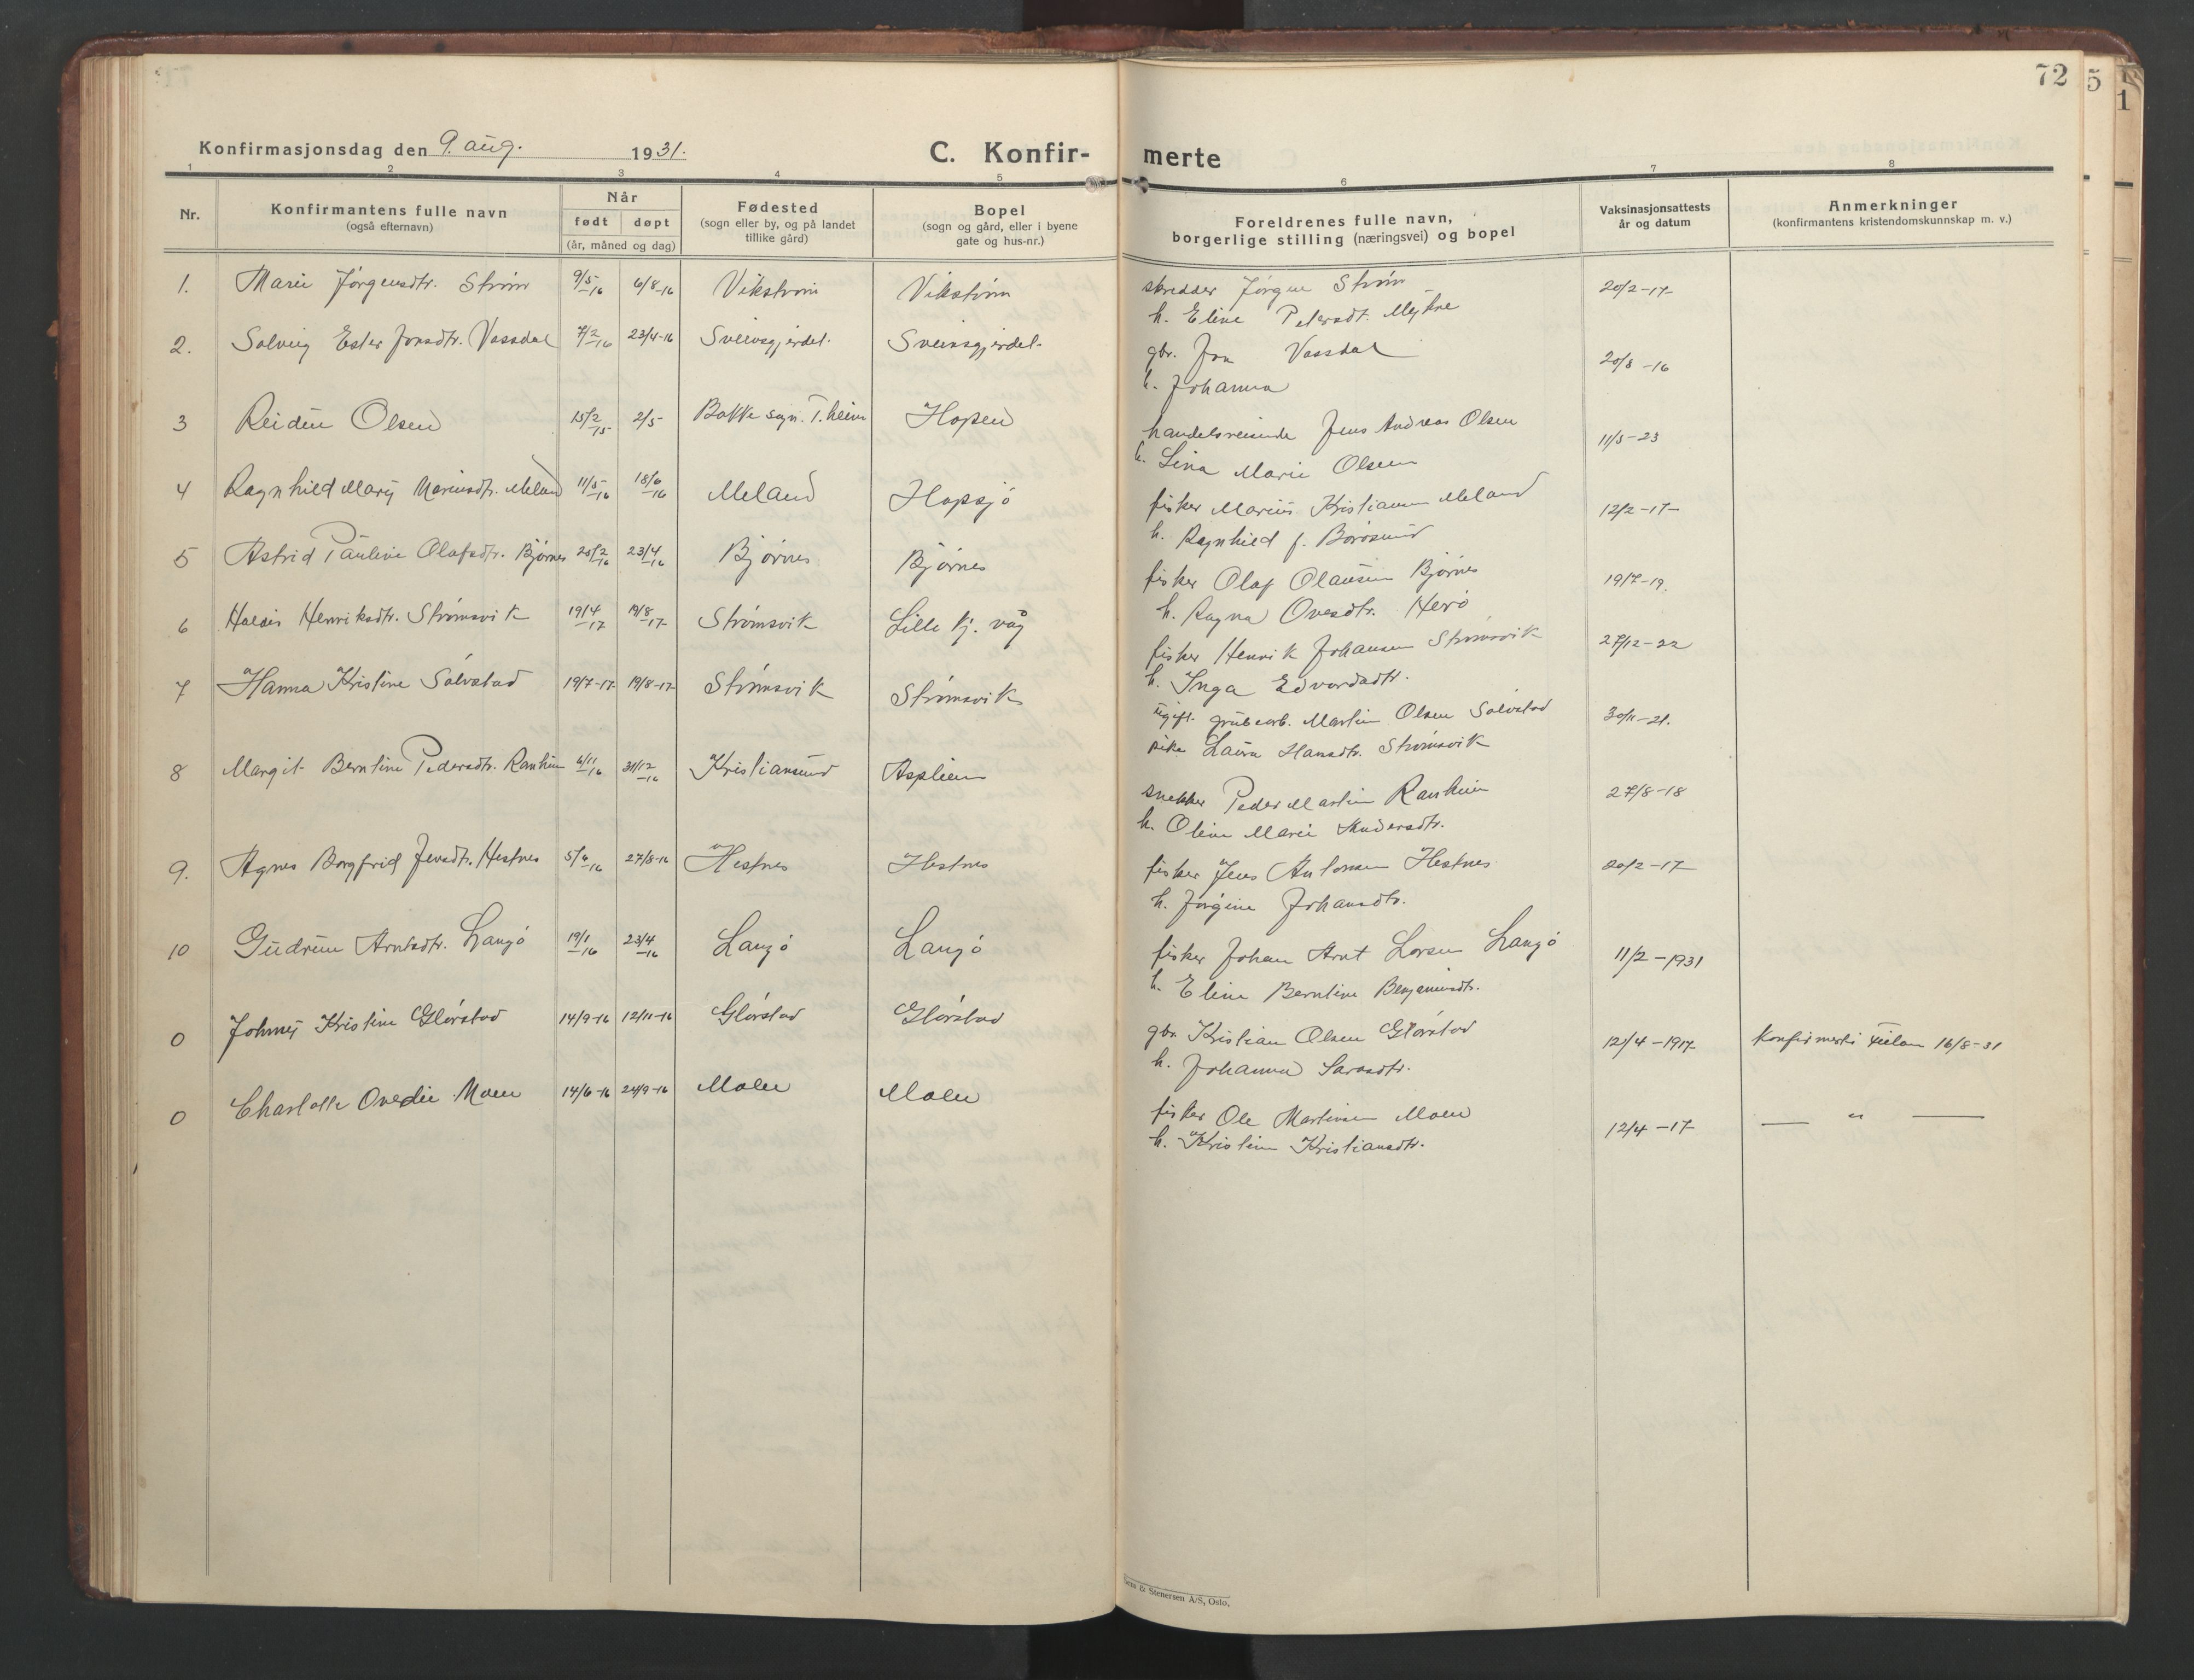 72
5
1
Konfirmasjonsdag den 9. aug. 1931.
C. Konfirmerte
1 2 3 4 5 6 7 8
Nr.
Konfirmantens fulle navn
(også efternavn)
Når
født døpt
(år, måned og dag)
Fødested
(sogn eller by, og på landet
tillike gård)
Bopel
(sogn og gård, eller i byene
gate og hus-nr.)
Foreldrenes fulle navn,
borgerlige stilling (næringsvei) og bopel
Vaksinasjonsattests
år og datum
Anmerkninger
(konfirmantens kristendomskunnskap m. v.)
1. Marie Jørgensdtr. Strøm 9/5-16 6/8-16 Vikstrøm Vikstrøm skredder Jørgen Strøm 20/2-17
h. Eline Petersdt. Myhre
2. Solveig Ester Jonsdtr. Vassdal 7/2-16 23/4-16 Sveinsgjerdet. Sveinsgjerdet. gbr. Jon Vassdal 20/8-16
h. Johanna
3 Reidun Olsen 15/2-15 2/5 Bakke sogn. T.heim Hopen handelsreisende Jens Andreas Olsen 11/5-23
h. Lina Marie Olsen
4 Ragnhild Mary Mariusdtr. Meland 11/5-16 18/6-16 Meland Hopsjø fisker Marius Kristiansen Meland 12/2-17
h. Ragnhild f. Børøsund
5 Astrid Pauline Olafsdtr. Bjørnes 25/2-16 23/4-16 Bjørnes Bjørnes fisker Olaf Olausen Bjørnes 19/7-19.
h. Ragna Ovesdtr. Herø
6 Haldis Henriksdtr. Strømsvik 19/4-17 19/8-17 Strømsvik Lille Kj. våg fisker Henrik Johansen Strømsvik 27/12-22
h. Inga Edvardsdtr.
7 Hanna Kristine Solvstad 19/7-17 19/8-17 Strømsvik Strømsvik ugift. grubearb. Martin Olsen Solvstad 30/11-21.
pike Laura Hansdtr. Strømsvik
8 Margit Berntine Pedersdtr. Ranheim 6/11-16 31/12-16 Kristiansund Asplien snekker Peder Martin Ranheim 27/8-18
h. Oline Marie Andersdtr.
9. Agnes Borgfrid Jensdtr. Hestnes 5/6-16 27/8-16 Hestnes Hestnes fisker Jens Antonsen Hestnes 20/2-17
h. Jørgine Johansdtr.
10 Gudrun Arntsdtr. Langø 19/1-16 23/4-16 Langø Langø fisker Johan Arnt Larsen Langø 11/2-1931
h. Eline Berntine Benjaminsdtr.
0 Johnny Kristine Glørstad 14/9-16 12/11-16 Glørstad Glørstad gbr. Kristian Olsen Glørstad 12/4-1917 Konfirmert i Fillan 16/8-31
h. Johanna Larsdtr.
0 Charlotte Ovedie Moen 14/6-16 24/9-16 Moen Moen fisker Ole Martinsen Moen 12/4-17 — " —
h. Kristine Kristiansdtr.
& Stenersen A/S, Oslo.